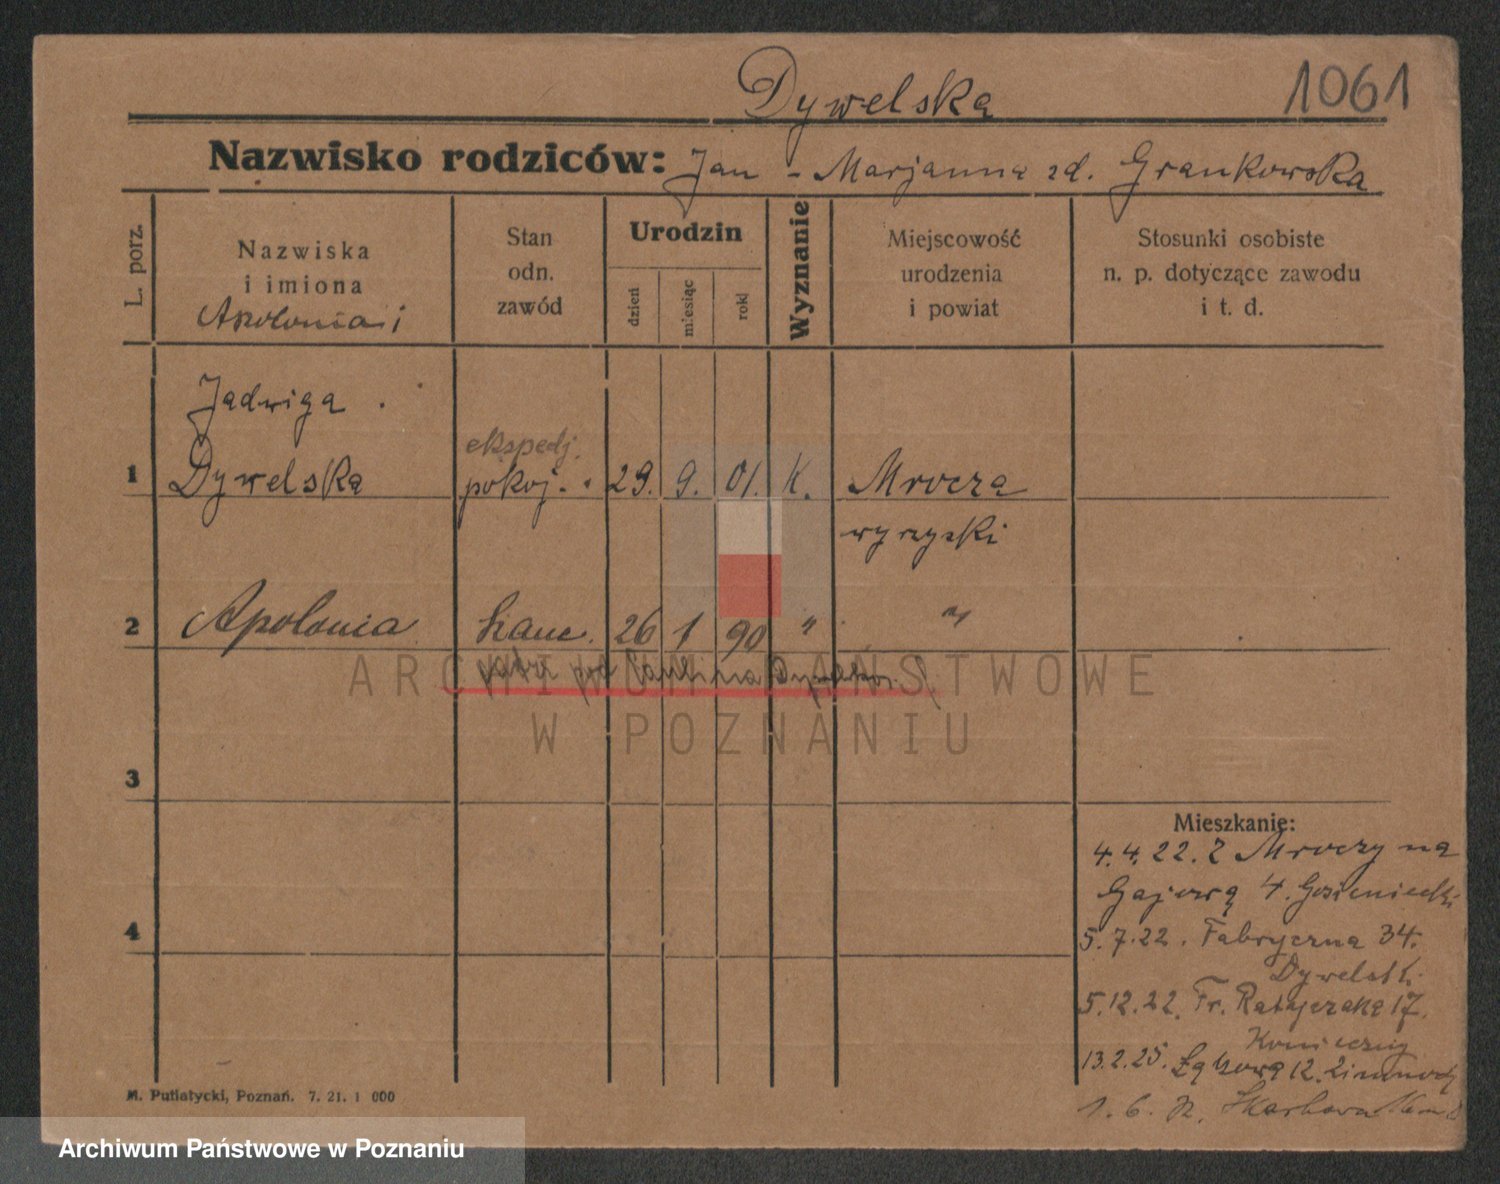 Dywelska 1061
Nazwisko rodziców: Jan - Marjanna zd. Grankowska
L. porz.
Nazwiska i imiona
Apolonia i
Stan odn. zawód
Urodzin
dzień
miesiąc
rok
Wyznanie
Miejscowość urodzenia i powiat
Stosunki osobiste n. p. dotyczące zawodu i t. d.
Jadwiga
ekspedj.
1 Dywelska pokoj. 29. 9. 01. K. Mrocza
wyrzyski
2 Apolonia 26 1 90 " "
pod
ARCHIWUM PAŃSTWOWE
W POZNANIU
3
4
Mieszkanie:
4.4.22. z Mroczy na
Gajową 4.
5.7.22. Fabryczna 34.
Dywelski.
5.12.22. Fr. Ratajczaka 17.
Konieczny
13.2.25. Łąkowa 12.
1.6. Skarbowa
M. Putiatycki, Poznań. 7. 21. 1 000
Archiwum Państwowe w Poznaniu